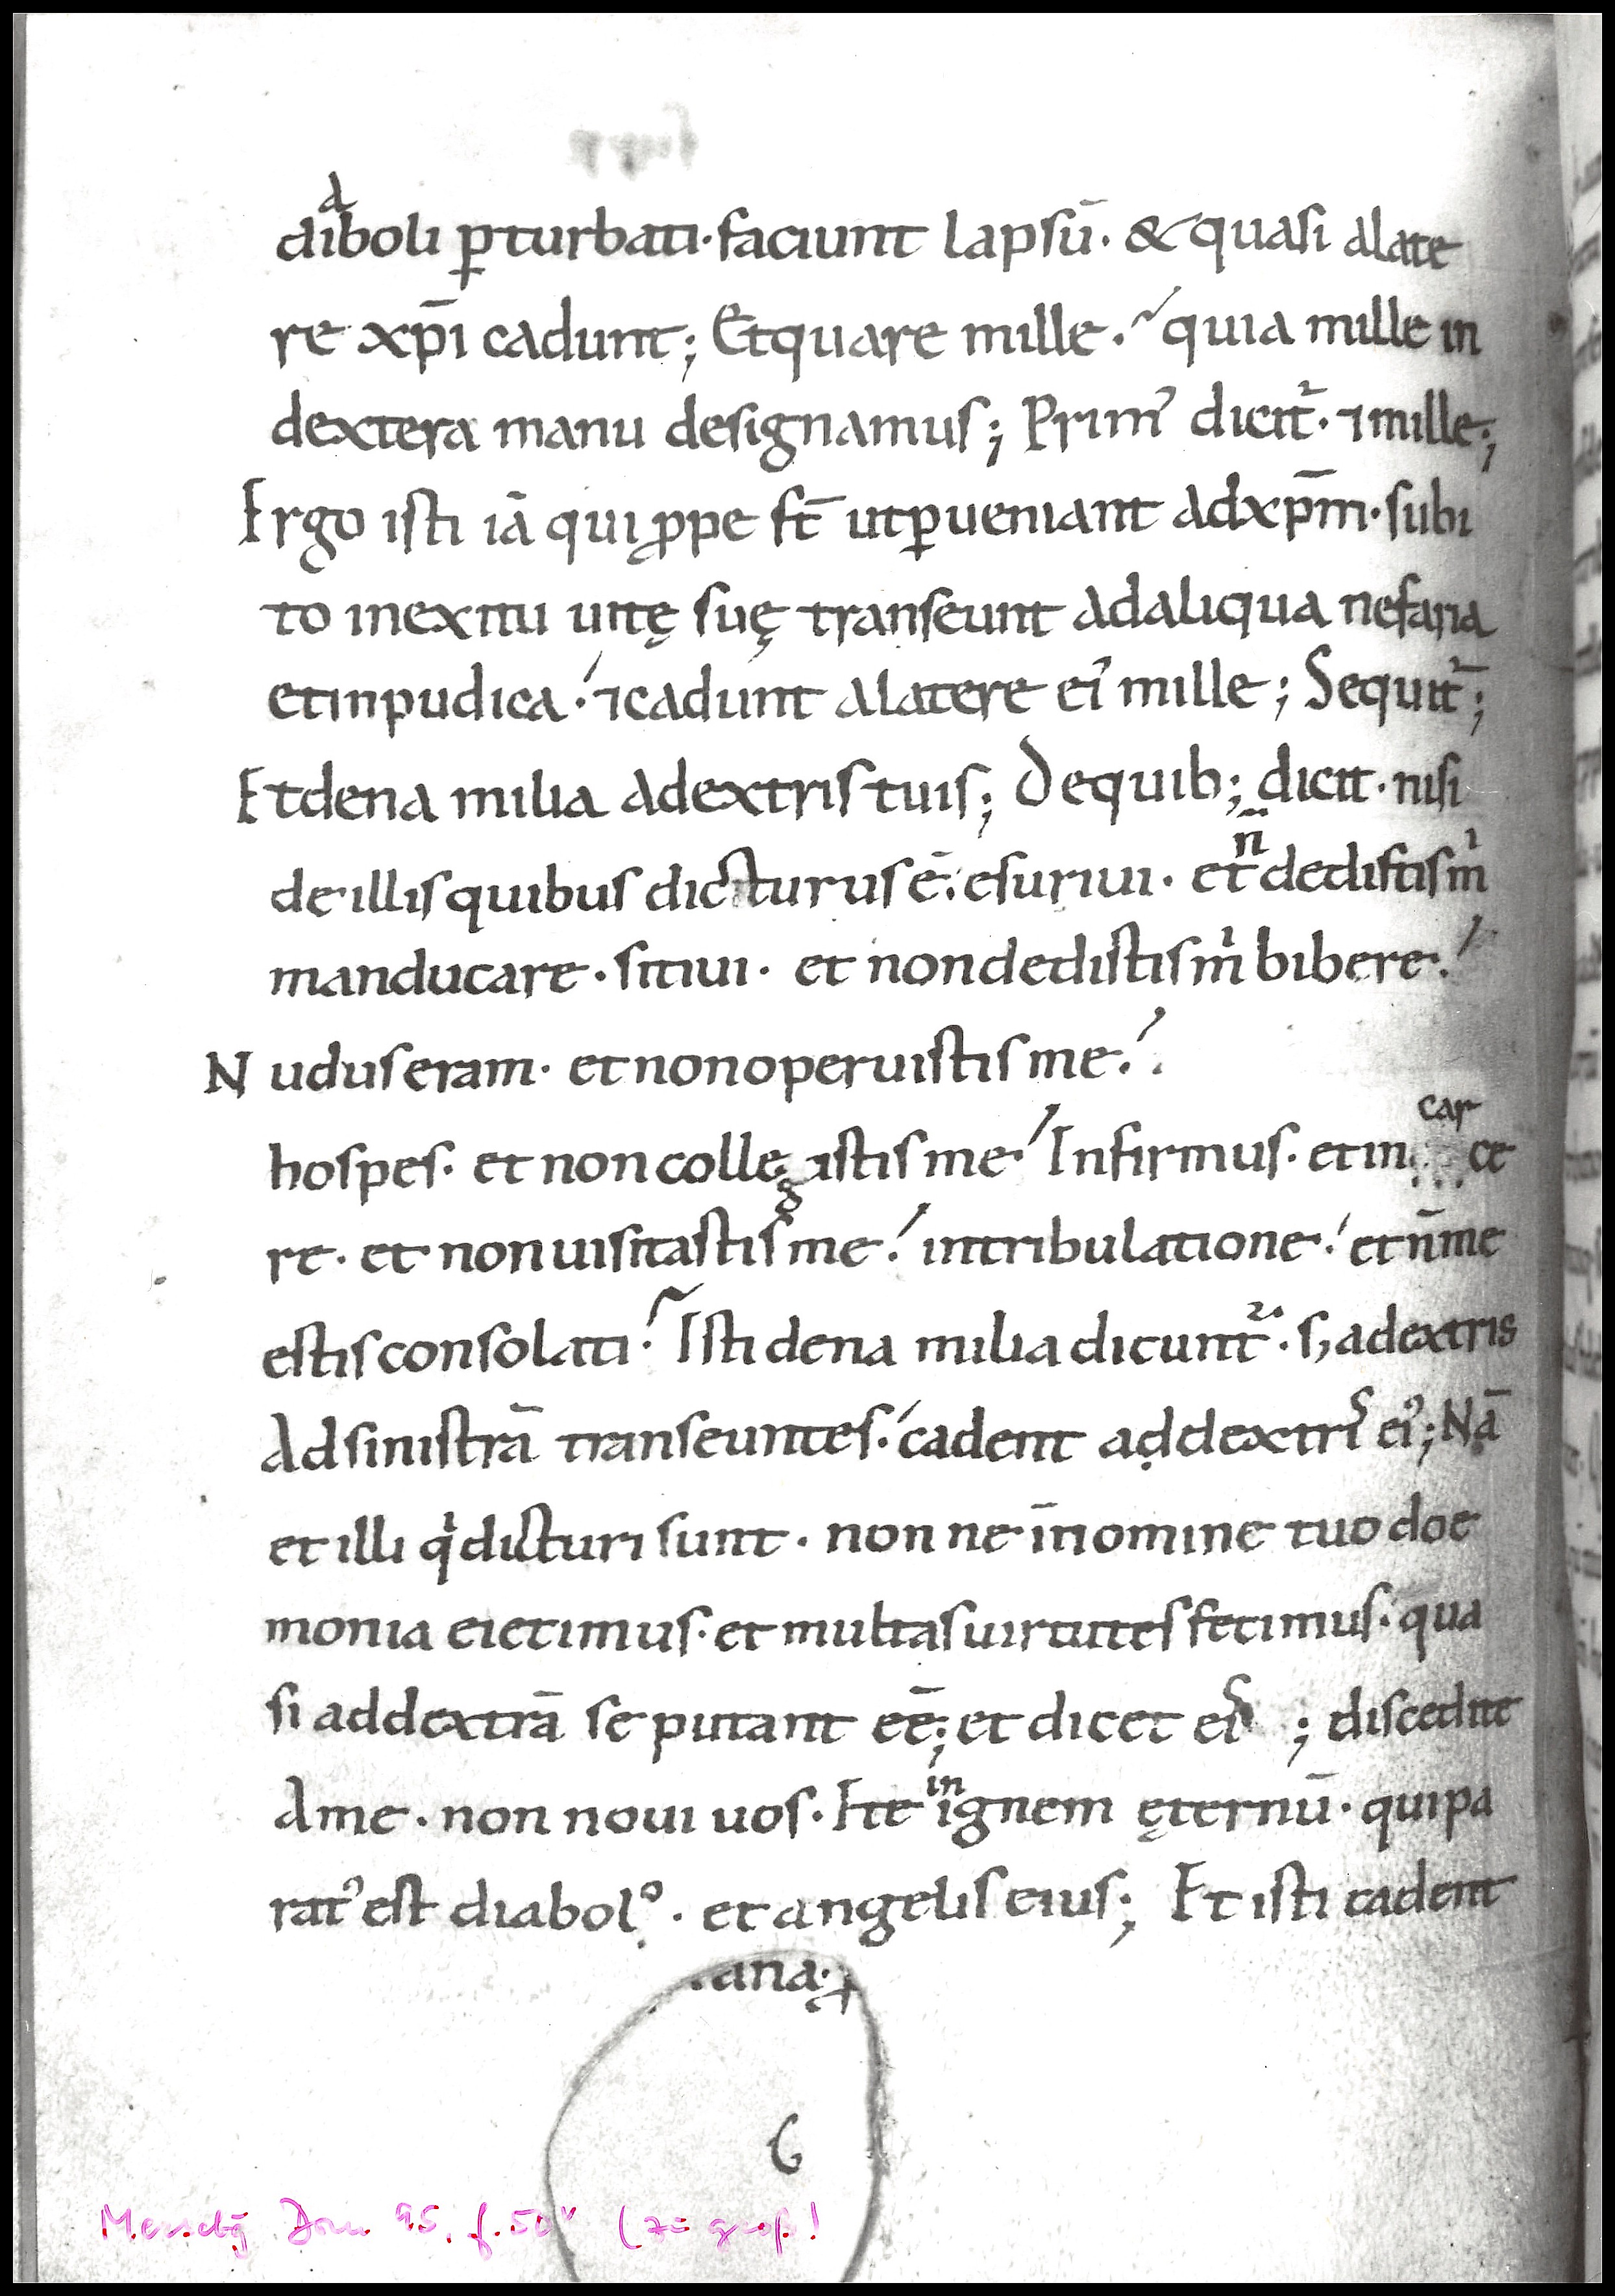 diaboli ꝑturbati· faciunt lapsū· & quasi alate
re xp̄i cadunt; Et quare mille· quia mille in
dextera manu designamus; Primꝰ dicit᷑· ⁊ mille;
Ergo isti iā qui ꝓpe st̄ ut ꝑueniant ad xp̄m· subi
to in exitu uitę suę transeunt ad aliqua nefaria
et inpudica· ⁊ cadunt a latere eiꝰ mille; Sequit᷑;
Et dena milia a dextris tuis; De quib; dicit· nisi
de illis quibus dicturus ē· esuriui· et n̄ dedistis m̍
manducare· sitiui· et non dedistis m̍ bibere·
Nudus eram· et non operuistis me·
hospes· et non collegistis me· Infirmus· et in carce
re· et non uisitastis me· in tribulatione· et n̄ me
estis consolati· Isti dena milia dicunt᷑· s; a dextris
ad sinistrā transeuntes· cadent ad dextrˢ eiꝰ; Nā
et illi q̍ dicturi sunt· non ne in nomine tuo doe
monia eiecimus· et multas uirtutes fecimus· qua
si ad dextrā se putant eē; et dicet eiˢ ; discedite
a me· non noui uos· Ite in ignem ęternū· qui pa
ratꝰ est diabolº· et angelis eius; Et isti cadent
ana· ꝓ
6
Merseb. Dom 95. f. 50v (zu groß!